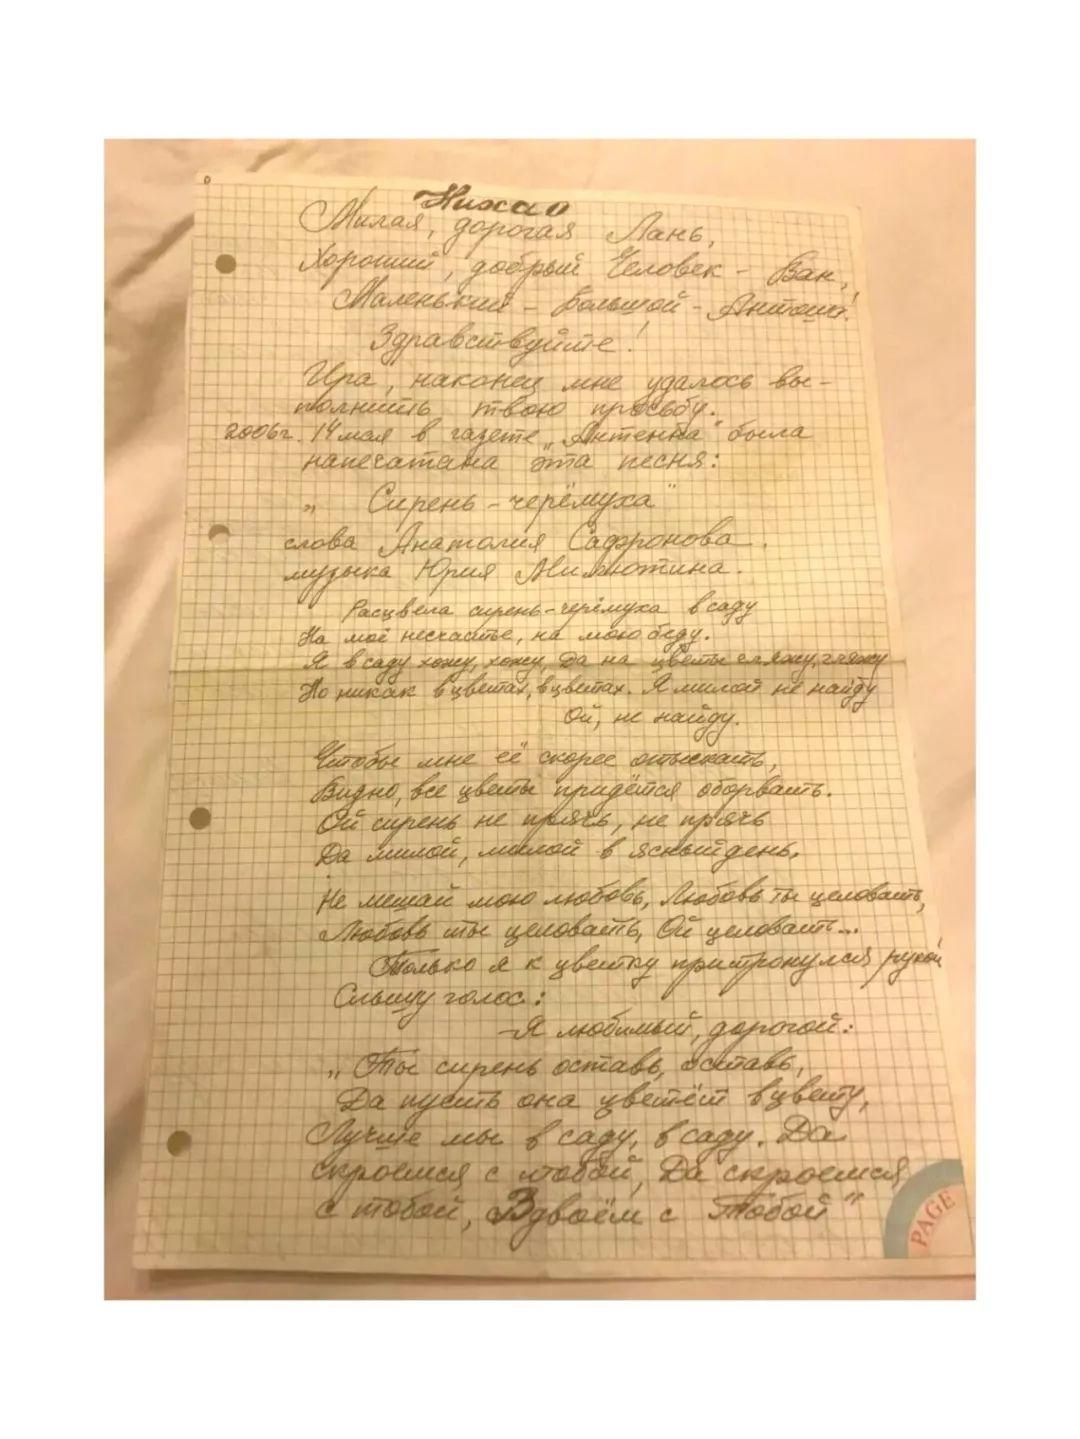 Нихао
Милая, дорогая Лань,
Хороший, добрый Человек - Ван,
Маленький - Большой - Антоша!
Здравствуйте!
Ира, наконец мне удалось вы-
полнить твою просьбу.
2006г. 14 мая в газете „Антенна" была
напечатана эта песня:
„Сирень-черёмуха"
слова Анатолия Сафронова.
музыка Юрия Милютина.
Расцвела сирень-черёмуха в саду
На моё несчастье, на мою беду.
Я в саду хожу, хожу, Да на цветы гляжу, гляжу
Но никак в цветах, в цветах. Я милой не найду
Ой, не найду.
Чтобы мне её скорее отыскать,
Видно, все цветы придётся оборвать.
Ой сирень не прячь, не прячь
Да милой, милой в ясный день,
Не мешай мою любовь, Любовь ты целовать,
Любовь ты целовать, Ой целовать...
Только я к цветку притронулся рукой
Слышу голос:
-Я любимый, дорогой:
„Ты сирень оставь, оставь,
Да пусть она цветёт в цвету,
Лучше мы в саду, в саду. Да
скроемся с тобой, Да скроемся
с тобой, Вдвоём с Тобой"
PAGE